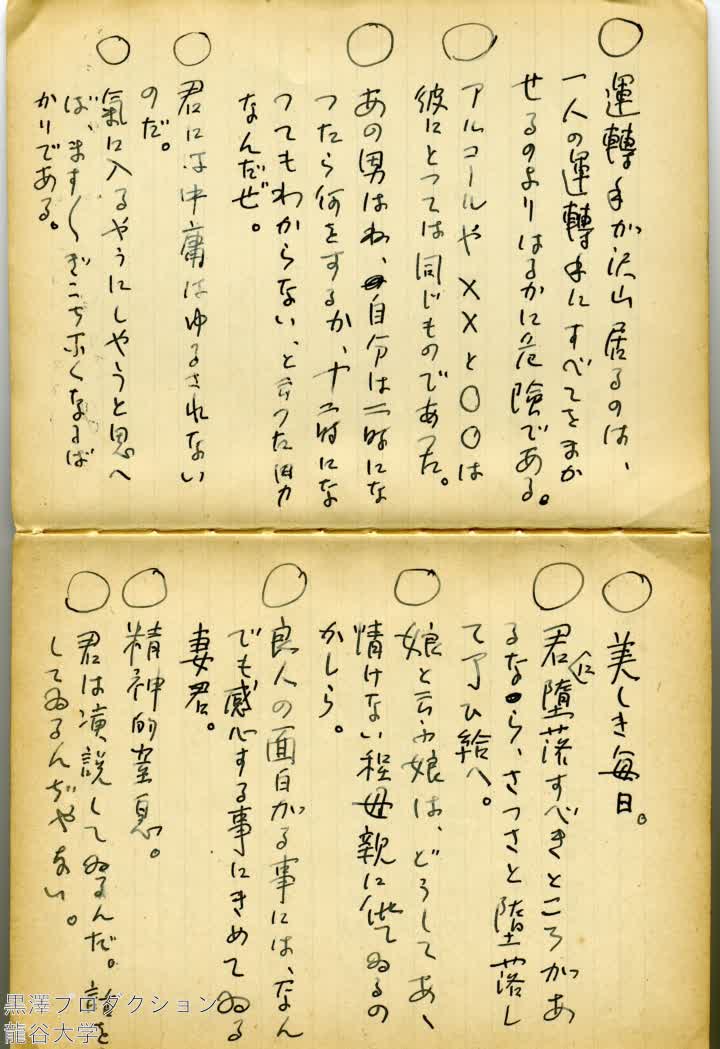 ○運轉手が沢山居るのは、
一人の運轉手にすべてをまか
せるのよりはるかに危険である。
○アルコールや××と○○は
彼にとつては同じものであつた。
○あの男はね、自分は一時にな
つたら何をするか、十二時にな
つてもわからない、と云つた男
なんだぜ。
○君には中庸はゆるされない
のだ。
○氣に入るやうにしやうと思へ
ば、ます〱ぎこちなくなるば
かりである。
○美しき毎日。
○君に堕落すべきところがあ
るなら、さつさと堕落し
て了ひ給へ。
○娘と云ふ娘は、どうしてあゝ
情けない程母親に似てゐるの
かしら。
○良人の面白がる事には、なん
でも感心する事にきめてゐる
妻君。
○精神的窒息。
○君は演説してゐるんだ。話を
してゐるんぢやない。
黒澤プロダクション
龍谷大学